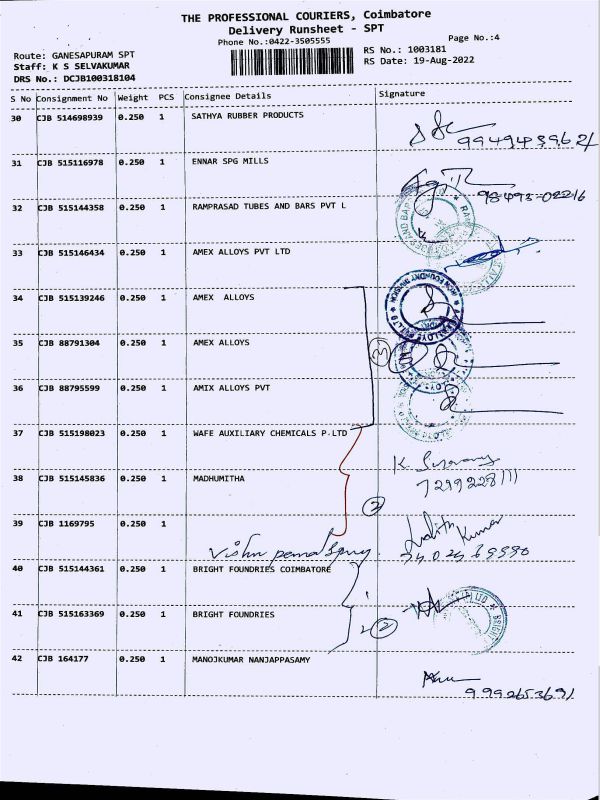 THE PROFESSIONAL COURIERS, Coimbatore
Delivery Runsheet - SPT
Phone No.:0422-3505555
Page No.:4
Route: GANESAPURAM SPT
RS No.: 1003181
Staff: K S SELVAKUMAR
RS Date: 19-Aug-2022
DRS No.: DCJB100318104
S No Consignment No Weight PCS Consignee Details Signature
30 CJB 514698939 0.250 1 SATHYA RUBBER PRODUCTS
31 CJB 515116978 0.250 1 ENNAR SPG MILLS
98495-02216
32 CJB 515144358 0.250 1 RAMPRASAD TUBES AND BARS PVT L
33 CJB 515146434 0.250 1 AMEX ALLOYS PVT LTD
34 CJB 515139246 0.250 1 AMEX ALLOYS
35 CJB 88791304 0.250 1 AMEX ALLOYS
3
36 CJB 88795599 0.250 1 AMIX ALLOYS PVT
37 CJB 515198023 0.250 1 WAFE AUXILIARY CHEMICALS P.LTD
38 CJB 515145836 0.250 1 MADHUMITHA
2
39 CJB 1169795 0.250 1
Kumar
40 CJB 515144361 0.250 1 BRIGHT FOUNDRIES COIMBATORE
41 CJB 515163369 0.250 1 BRIGHT FOUNDRIES
2
BRIGHT
42 CJB 164177 0.250 1 MANOJKUMAR NANJAPPASAMY
9992653691